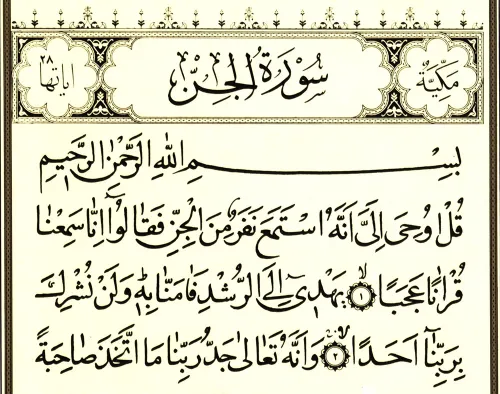 مكية
سورة الجن
اياتها ٢٨
بِسْمِ اللهِ الرَّحْمٰنِ الرَّحِيمِ
قُلْ اُوحِىَ اِلَىَّ اَنَّهُ اسْتَمَعَ نَفَرٌ مِنَ الْجِنِّ فَقَالُٓوا اِنَّا سَمِعْنَا
قُرْاٰنًا عَجَبًاۙ ﴿١﴾ يَهْدِىٓ اِلَى الرُّشْدِ فَاٰمَنَّا بِهٖۜ وَلَنْ نُشْرِكَ
بِرَبِّنَٓا اَحَدًاۙ ﴿٢﴾ وَاَنَّهُ تَعَالٰى جَدُّ رَبِّنَا مَا اتَّخَذَ صَاحِبَةً